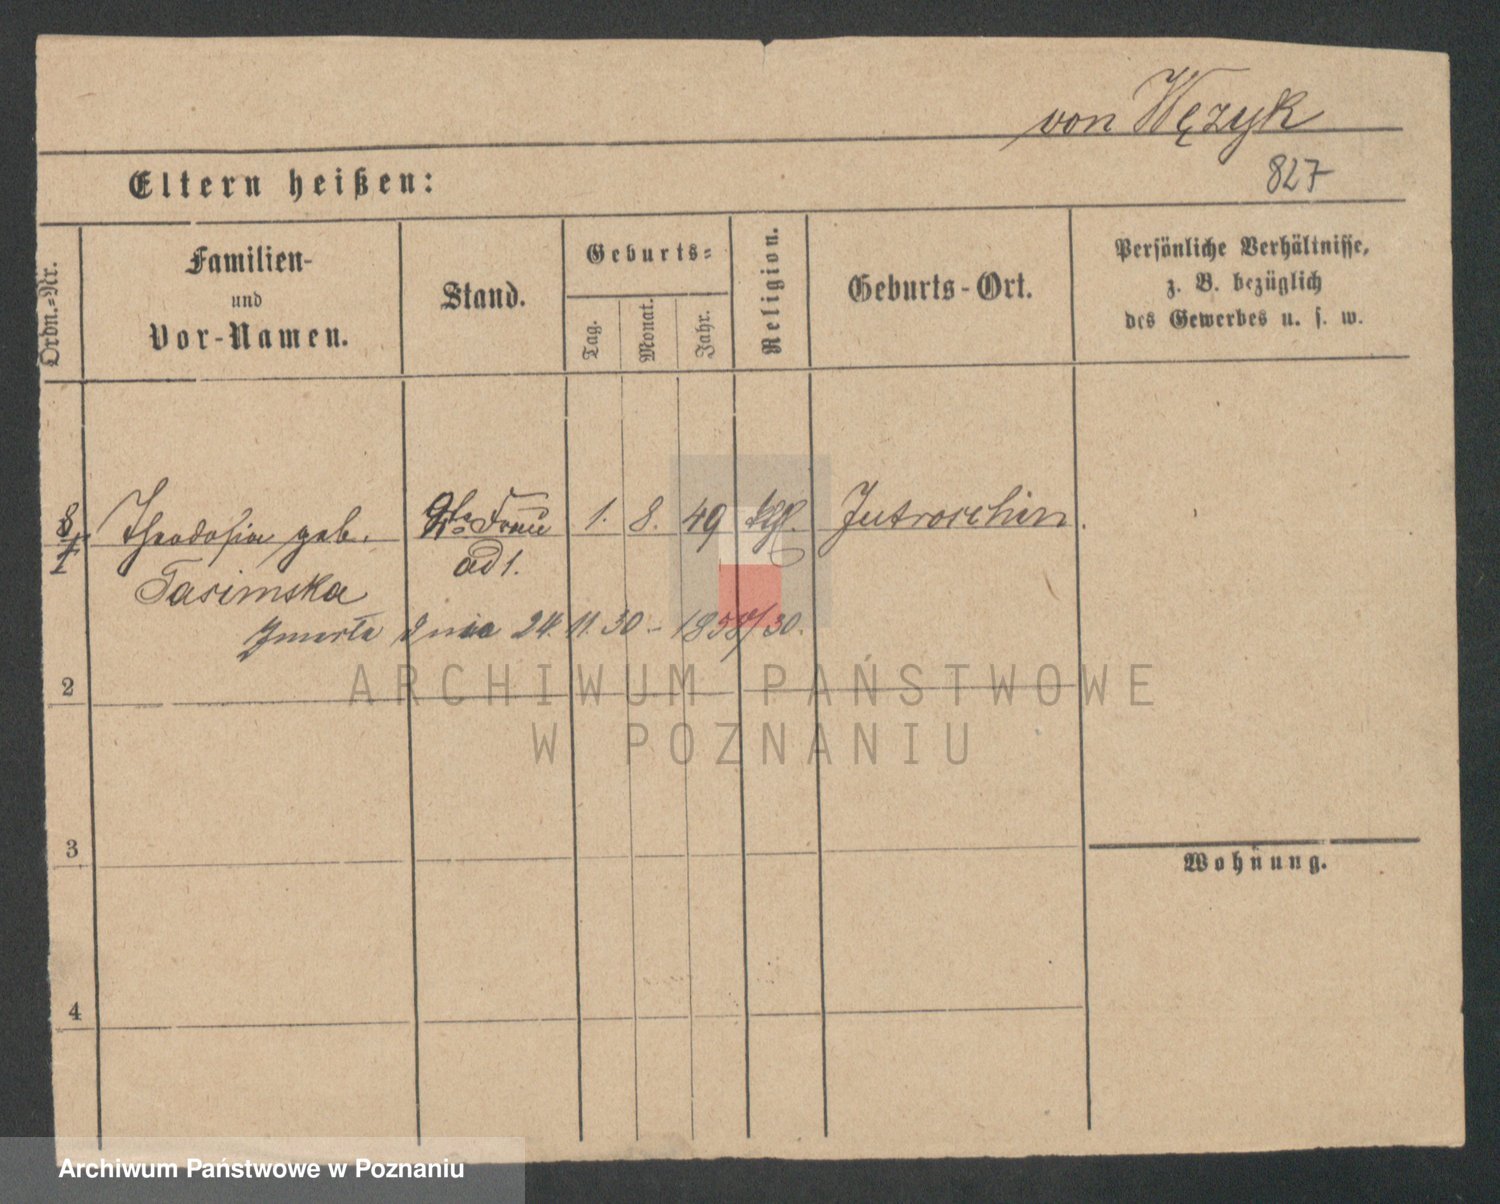 von Wężyk
827
Eltern heißen:
Ordn.-Nr.
Familien-
und
Vor-Namen.
Stand.
Geburts-
Tag.
Monat.
Jahr.
Religion.
Geburts-Ort.
Persönliche Verhältnisse,
z. B. bezüglich
des Gewerbes u. s. w.
Theodosia geb. Frau 1. 8. 49 kth. Jutroschin.
Tasimska ad 1.
Zmarła dnia 24. 11. 30 - 1858/30.
2
ARCHIWUM PAŃSTWOWE
W POZNANIU
3
Wohnung.
4
Archiwum Państwowe w Poznaniu